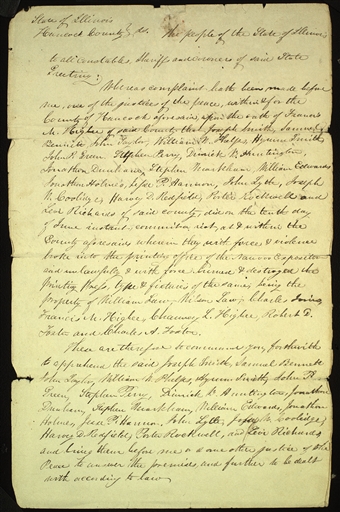 State of Illinois
Hancock County } ss. The people of the State of Illinois
to all constables, sheriffs and coroners of said State
Greeting:
Whereas complaint hath been made before
me, one of the justices of the peace, within & for the
County of Hancock aforesaid, upon the oath of Francis
M. Higbee of said County, that Joseph Smith, Samuel
Bennett, John Taylor, William W. Phelps, Hyrum Smith,
John P. Green, Stephen Perry, Dimick B. Huntington,
Jonathan Dunham, Stephen Markham, William Edwards,
Jonathan Holmes, Jesse P. Harmon, John Lytle, Joseph
W. Coolidge, Harvey D. Redfield, Porter Rockwell and
Levi Richards of said county, did on the tenth day
of June instant commit a riot, at & within the
County aforesaid wherein they with force & violence
broke into the printing office of the Nauvoo Expositor
and unlawfully & with force burned & destroyed the
printing press, type & fixtures of the same, being the
property of William Law, Wilson Law, Charles Ivins,
Francis M. Higbee, Chauncey L. Higbee, Robert D.
Foster and Charles A. Foster.
These are therefore to command you forthwith
to apprehend the said Joseph Smith, Samuel Bennett
John Taylor, William W. Phelps, Hyrum Smith, John P.
Green, Stephen Perry, Dimick B. Huntington, Jonathan
Dunham, Stephen Markham, William Edwards, Jonathan
Holmes, Jesse P. Harmon, John Lytle, Joseph W. Coolidge,
Harvey D. Redfield, Porter Rockwell, and Levi Richards
and bring them before me or some other justice of the
Peace to answer the premises and further to be dealt
with according to law